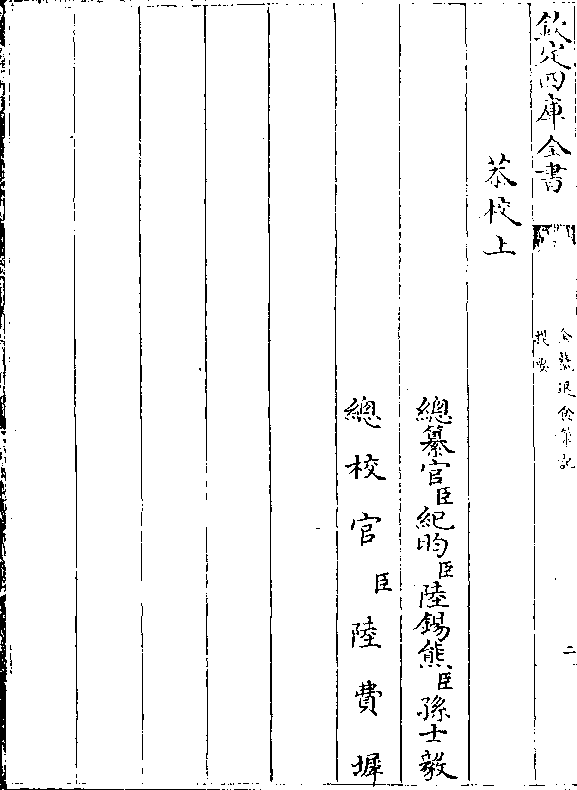 欽定四庫全書
金鰲退食筆記
提要
二
恭校上
總纂官臣紀昀臣陸錫熊臣孫士毅
總校官臣陸費墀